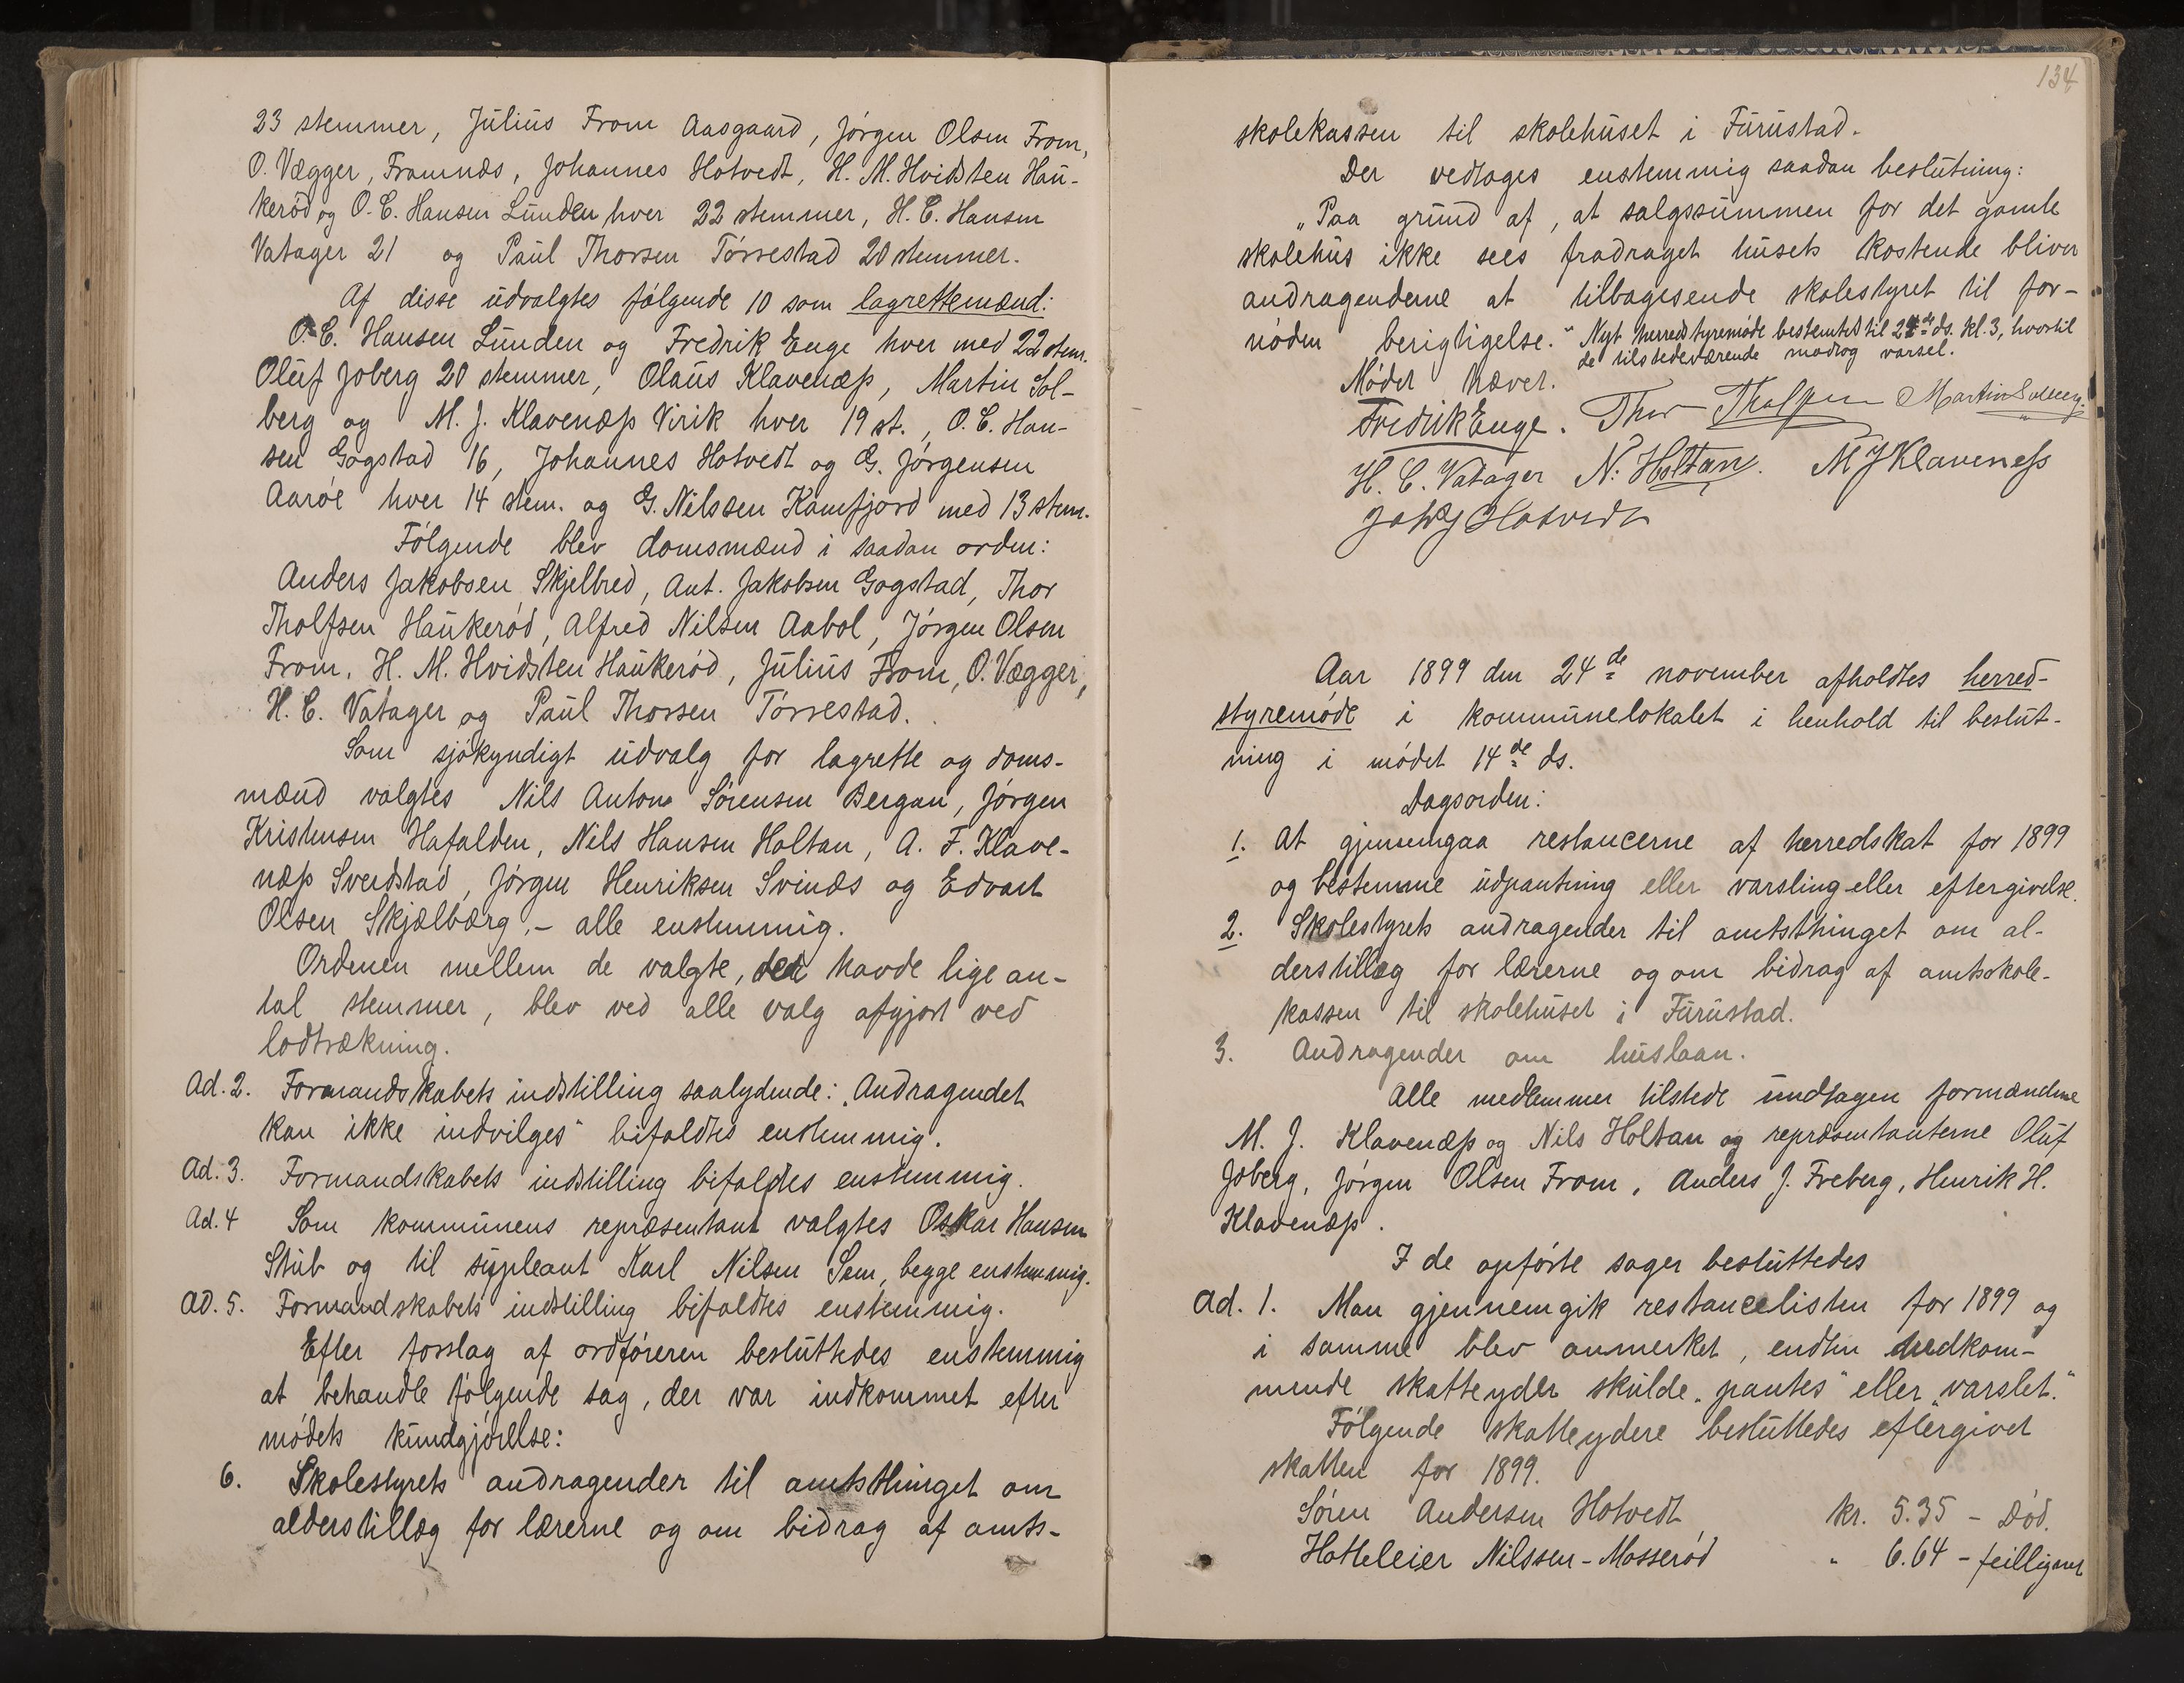 23 stemmer, Julius From Aasgaard, Jørgen Olsen From,
O. Vægger, Framnæs, Johannes Hotvedt, H. M. Hvidsten Hau-
kerød og O. C. Hansen Lunden hver 22 stemmer, H. C. Hansen
Vatager 21 og Paul Thorsen Tørrestad 20 stemmer.
Af disse udvalgtes følgende 10 som lagrettemænd:
O. C. Hansen Lunden og Fredrik Enge hver med 22 stem.
Oluf Joberg 20 stemmer, Olaus Klavenæss, Martin Sol-
berg og M. J. Klavenæss Virik hver 19 st., O. C. Han-
sen Gogstad 16, Johannes Hotvedt og G. Jørgensen
Aarøe hver 14 stem. og G. Nilssen Kamfjord med 13 stem.
Følgende blev domsmænd i saadan orden:
Anders Jakobsen Skjelbred, Ant. Jakobsen Gogstad, Thor
Tholfsen Haukerød, Alfred Nilsen Aabol, Jørgen Olsen
From, H. M. Hvidsten Haukerød, Julius From, O. Vægger,
H. C. Vatager og Paul Thorsen Tørrestad.
Som sjøkyndigt udvalg for lagrette og doms-
mænd valgtes Nils Anton Sørensen Bergan, Jørgen
Kristensen Hafalden, Nils Hansen Holtan, A. F. Klave-
næss Sverdstad, Jørgen Henriksen Svinæs og Edvart
Olsen Skjælbærg, - alle enstemmig.
Ordenen mellem de valgte, der havde lige an-
tal stemmer, blev ved alle valg afgjort ved
lodtrækning.
Ad. 2. Formandskabets indstilling saalydende: „Andragendet
kan ikke indvilges“ bifaldtes enstemmig.
Ad. 3. Formandskabets indstilling bifaldtes enstemmig.
Ad. 4 Som kommunens repræsentant valgtes Oskar Hansen
Stub og til supleant Karl Nilsen Sem, begge enstemmig.
Ad. 5. Formandskabets indstilling bifaldtes enstemmig.
Efter forslag af ordføreren besluttedes enstemmig
at behandle følgende sag, der var indkommet efter
mødets kundgjørelse:
6. Skolestyrets andragender til amtsthinget om
alderstillæg for lærerne og om bidrag af amts-
134
skolekassen til skolehuset i Furustad.
Der vedtoges enstemmig saadan beslutning:
„Paa grund af, at salgssummen for det gamle
skolehus ikke sees fradraget husets kostende bliver
andragenderne at tilbagesende skolestyret til for-
nøden berigtigelse.“ Nyt herredstyremøde bestemtes til 24de ds. kl. 3, hvortil
de tilstedeværende modtog varsel.
Mødet hævet.
Fredrik Enge. Thor Tholfsen Martin Solberg.
H. C. Vatager N. Holtan. M J Klaveness
Johs Hotvedt
Aar 1899 den 24de november afholdtes herred-
styremøde i kommunelokalet i henhold til beslut-
ning i mødet 14de ds.
Dagsorden:
1. At gjennemgaa restancerne af herredskat for 1899
og bestemme udpantning eller varsling eller eftergivelse.
2. Skolestyrets andragender til amtsthinget om al-
derstillæg for lærerne og om bidrag af amtsskole-
kassen til skolehuset i Furustad.
3. Andragender om huslaan.
Alle medlemmer tilstede undtagen formændene
M. J. Klavenæss og Nils Holtan og repræsentanterne Oluf
Joberg, Jørgen Olsen From, Anders J. Freberg, Henrik H.
Klavenæss.
I de opførte sager besluttedes
Ad. 1. Man gjennemgik restancelisten for 1899 og
i samme blev anmerket, endten vedkom-
mende skatteyder skulde „pantes“ eller „varslet.“
Følgende skatteydere besluttedes eftergivet
skatten for 1899.
Søren Andersen Hotvedt kr. 5.35 - Død.
Hotteleier Nilssen - Mosserød " 6.64 - feillignet